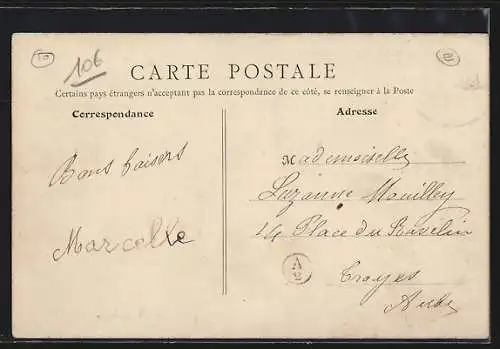 106
CARTE POSTALE
Certains pays étrangers n'acceptant pas la correspondance de ce côté, se renseigner à la Poste
Correspondance
Adresse
Bons baisers
Marcelle
Mademoiselle
Suzanne Mouilley
14 Place du
Troyes
Aube
A
2